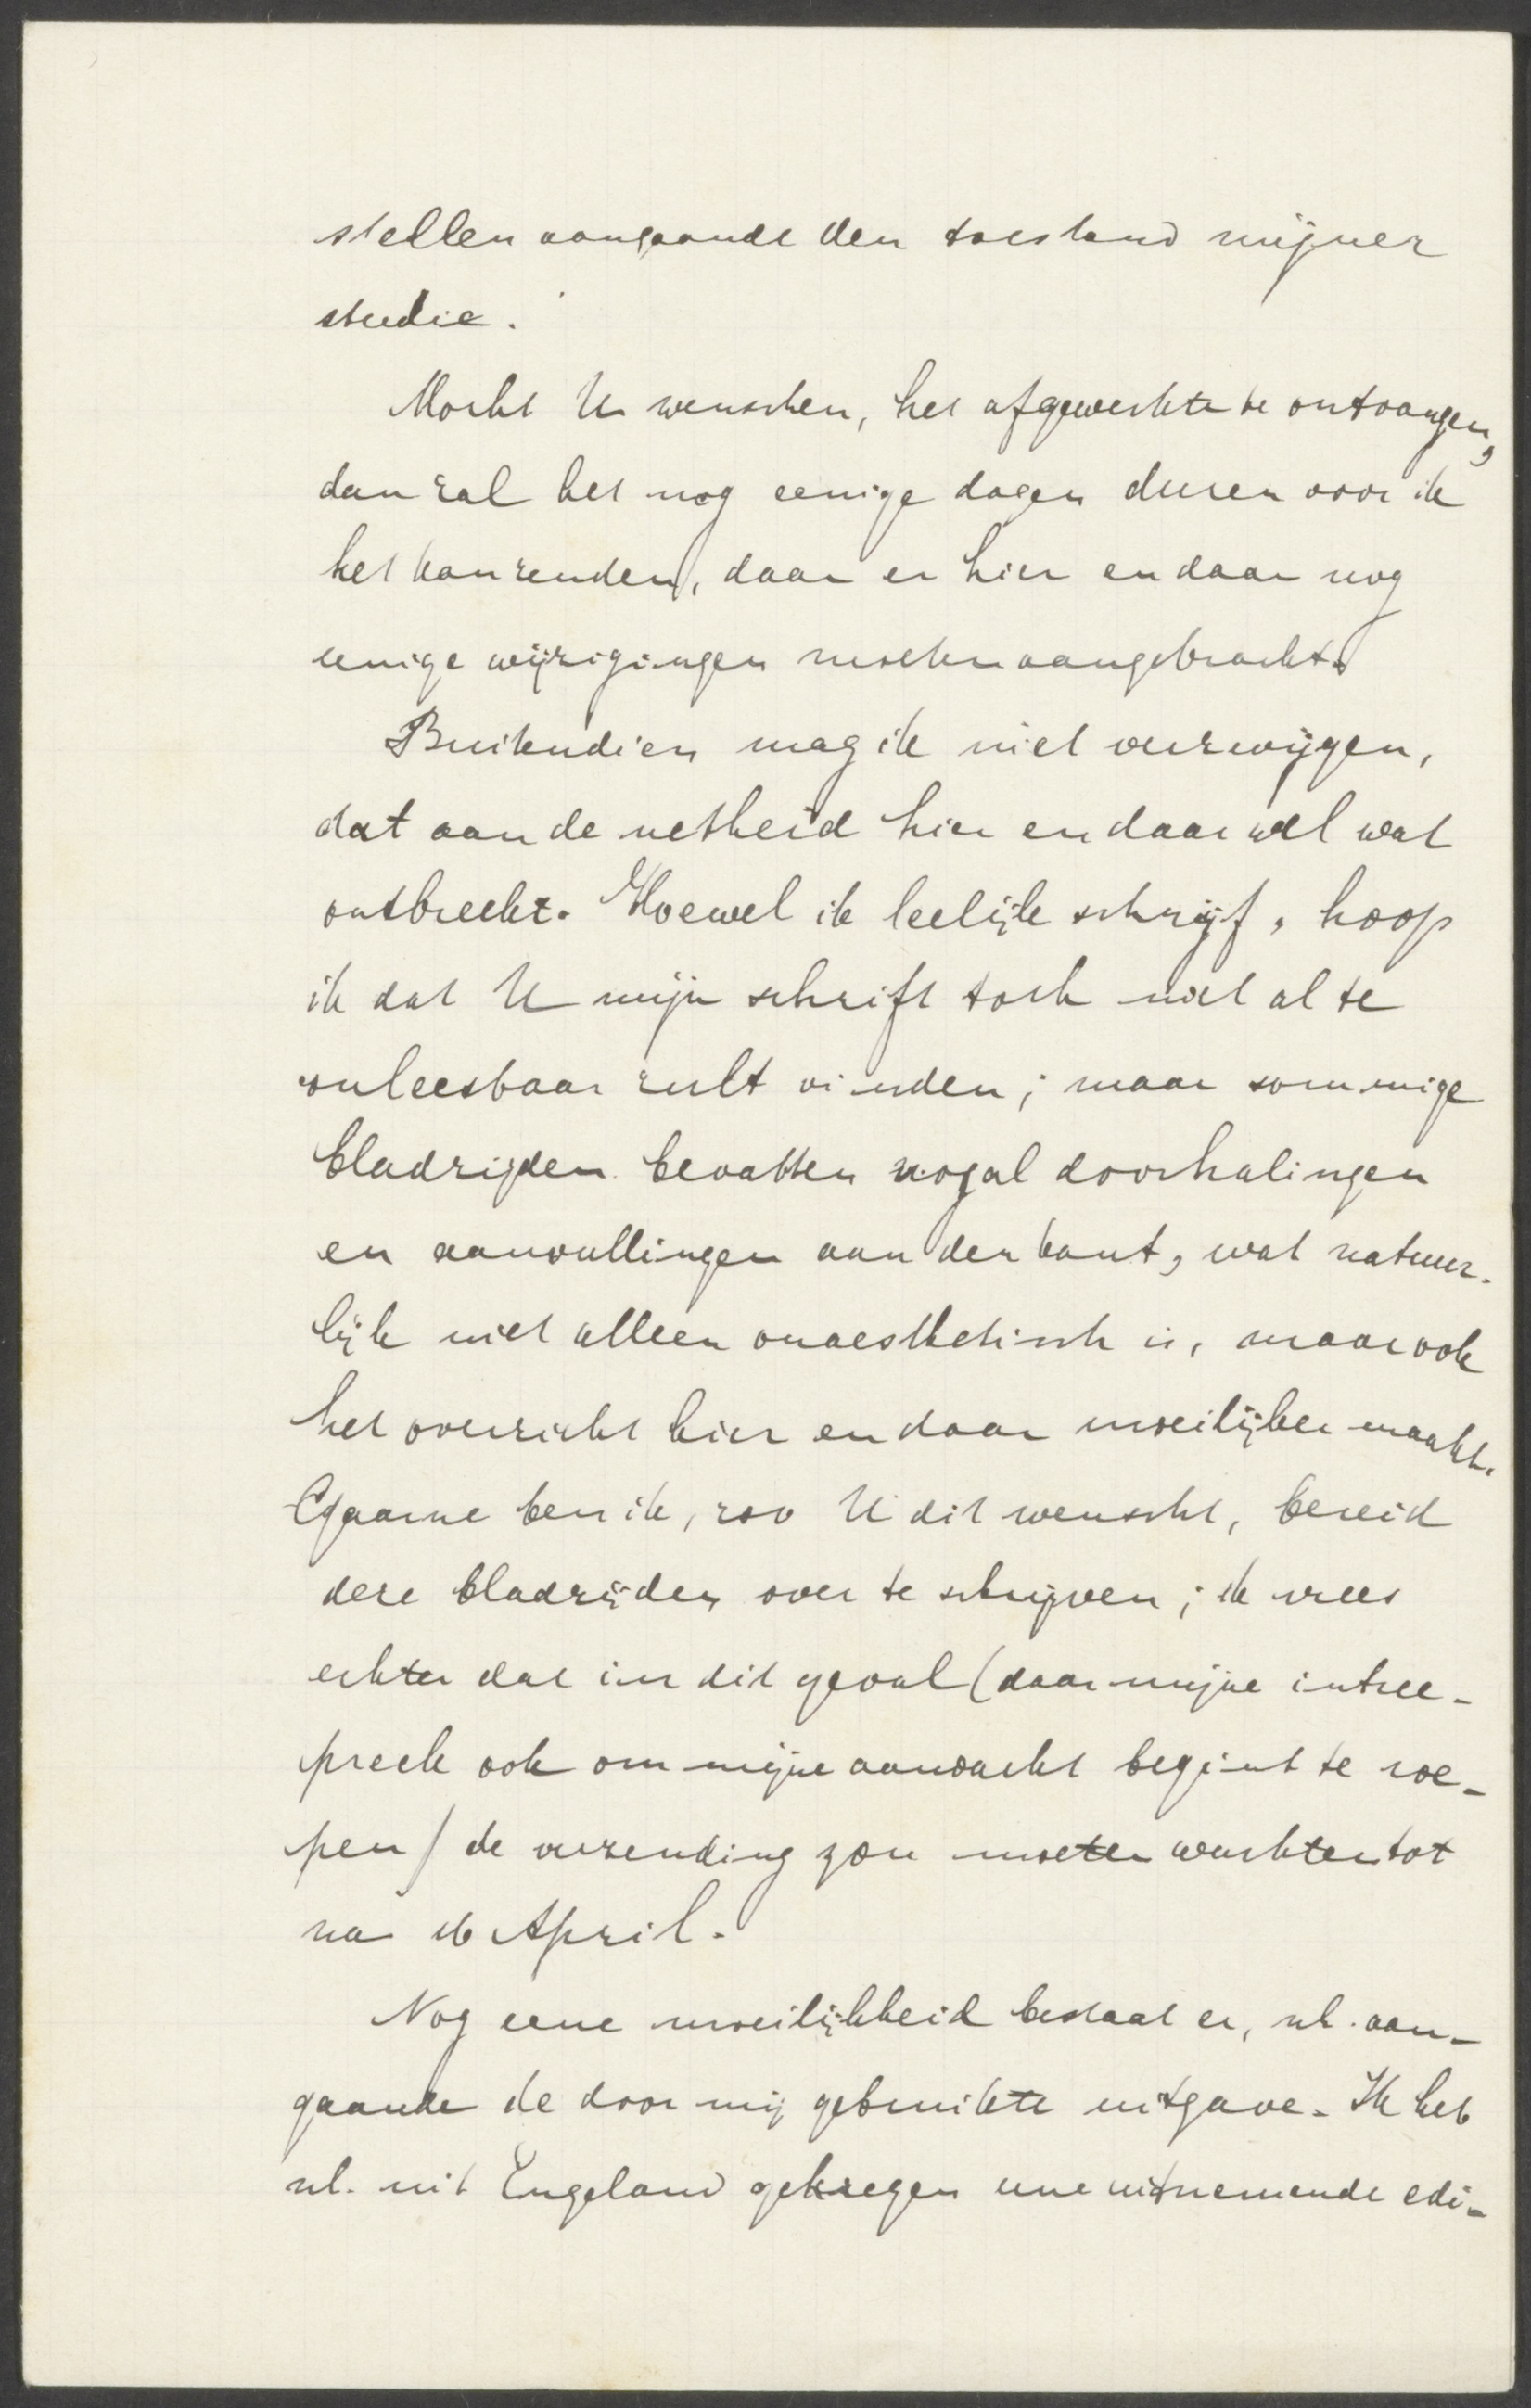 stellen aangaande den toestand mijner
studie.
Mocht U wenschen, het afgewerkte te ontvangen,
dan zal het nog eenige dagen duren voor ik
het kan zenden, daar er hier en daar nog
eenige wijzigingen moeten aangebracht.
Buitendien mag ik niet verzwijgen,
dat aan de netheid hier en daar wel wat
ontbreekt. Hoewel ik leelijk schrijf, hoop
ik dat U mijn schrift toch niet al te
onleesbaar zult vinden; maar sommige
bladzijden bevatten nogal doorhalingen
en aanvullingen aan den kant, wat natuur-
lijk niet alleen onaesthetisch is, maar ook
het overzicht hier en daar moeilijker maakt.
Gaarne ben ik, zoo U dit wenscht, bereid
deze bladzijden over te schrijven; ik vrees
echter dat in dit geval (daar mijne intree-
preek ook om mijne aandacht begint te roe-
pen) de verzending zou moeten wachten tot
na 16 April.
Nog eene moeilijkheid bestaat er, nl. aan-
gaande de door mij gebruikte uitgave. Ik heb
nl. uit Engeland gekregen eene uitnemende edi-